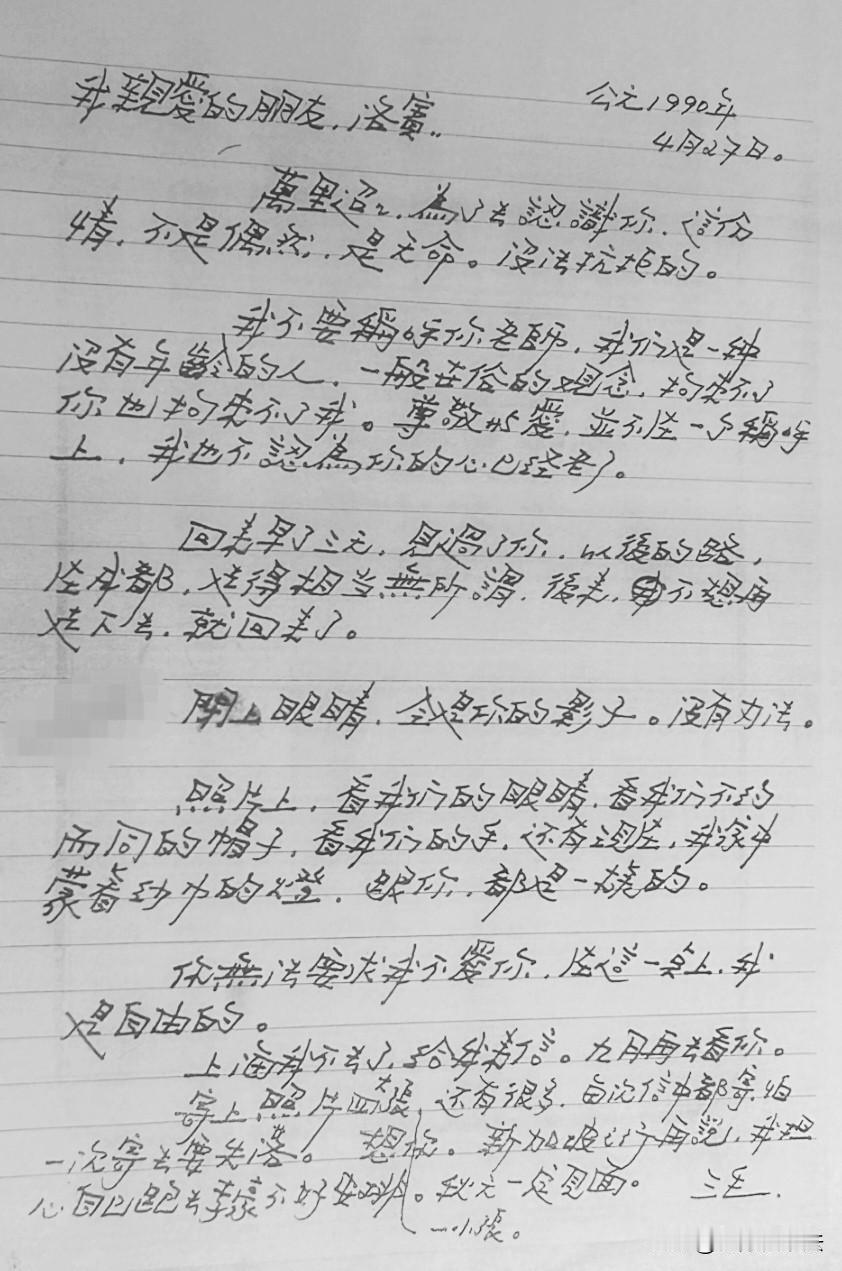 我親愛的朋友，洛賓：
公元1990年
4月27日。
萬里迢迢，為了去認識你，這份
情，不是偶然，是天命。沒法抗拒的。
我不要稱呼你老師，我们是一种
沒有年齡的人，一般世俗的观念，拘束不了
你也拘束不了我。尊敬与愛，並不在一个稱呼
上，我也不認為你的心已经老了。
回来早了三天，見過了你，以後的路，
在成都，走得相当無所謂，後来，不想再
走下去，就回来了。
閉上眼睛，全是你的影子。沒有办法。
照片上，看我们的眼睛，看我们不约
而同的帽子，看我们的手，还有现在，我家中
蒙着纱巾的燈，跟你，都是一樣的。
你無法要求我不愛你，在這一点上，我
是自由的。
上海我不去了，给我来信。九月再去看你。
寄上照片四大張，还有很多，每次信中都寄，怕
一次寄去要失落。想你。新加坡之行再說，我担
心自己跑去李豪不好安排。秋天一定見面。 三毛
一小張。